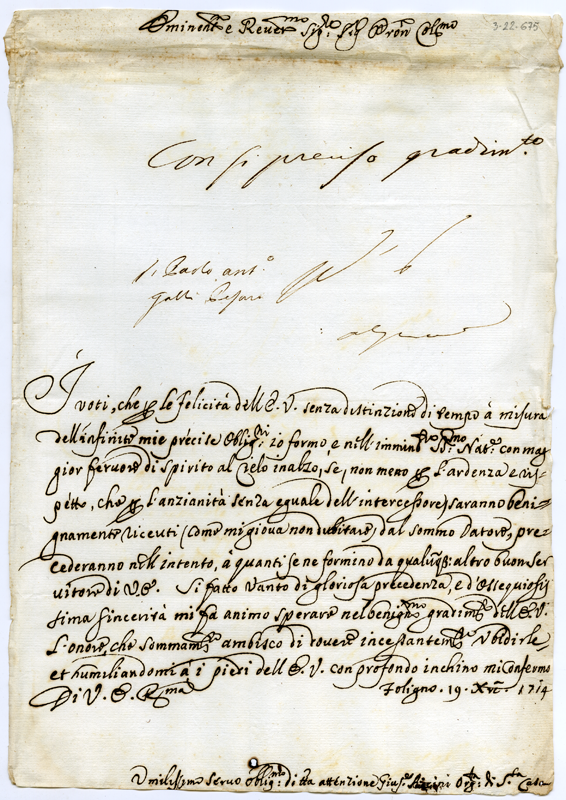 Eminen.mo e Reuer.mo Sig.re Sig. Pron Col.mo
3-22-675
Con si preciso gradim.to
Paolo ant.o
Galli Pesaro
I voti, che p le felicità dell'E. V. senza distinzione di tempo à misura
dell'infinite mie precise Oblig.ni io formo e nell'immin.te SS.mo Nat.e con mag
gior fervore di spirito al Cielo inalzo, se, non meno p l'ardenza e ris=
petto, che p l'anzianità senza eguale dell'intercessore saranno beni=
gnamente riceuti (come mi giova non dubitare) dal sommo Datore, pre=
cederanno nell'intento, à quanti se ne formino da qualunq: altro buon ser
vitore di V.E. Si fatto vanto di gloriosa precedenza, e d'ossequiosis
sima sincerità mi fa animo sperare nel benign.mo gradim.to dell'E.V.
L'onore, che sommam.te ambisco di dovere incessantem.te Vbidirle,
et humiliandomi à i piedi dell'E. V. con profondo inchino mi confermo
Di V. E. R.ma
Foligno. 19. Xre. 1714
Vmilissimo servo Oblig.mo di tta attenzione Gius.e Org.ta di S.ta Casa